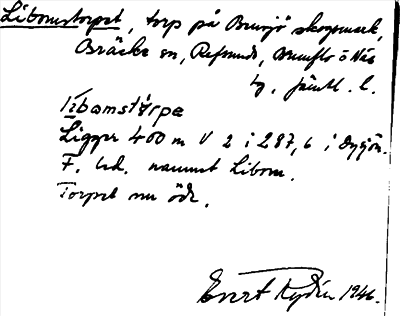 Libomstorpet, torp på Bensjö skogsmark,
Bräcke sn, Refsunds, Brunflo o Näs
tg, Jämtl. l.
Libamstårpe
Ligger 400 m V 2 i 287,6 i Dysjön.
F. led. namnet Libom.
Torpet nu öde.
Evert Rydén 1946.